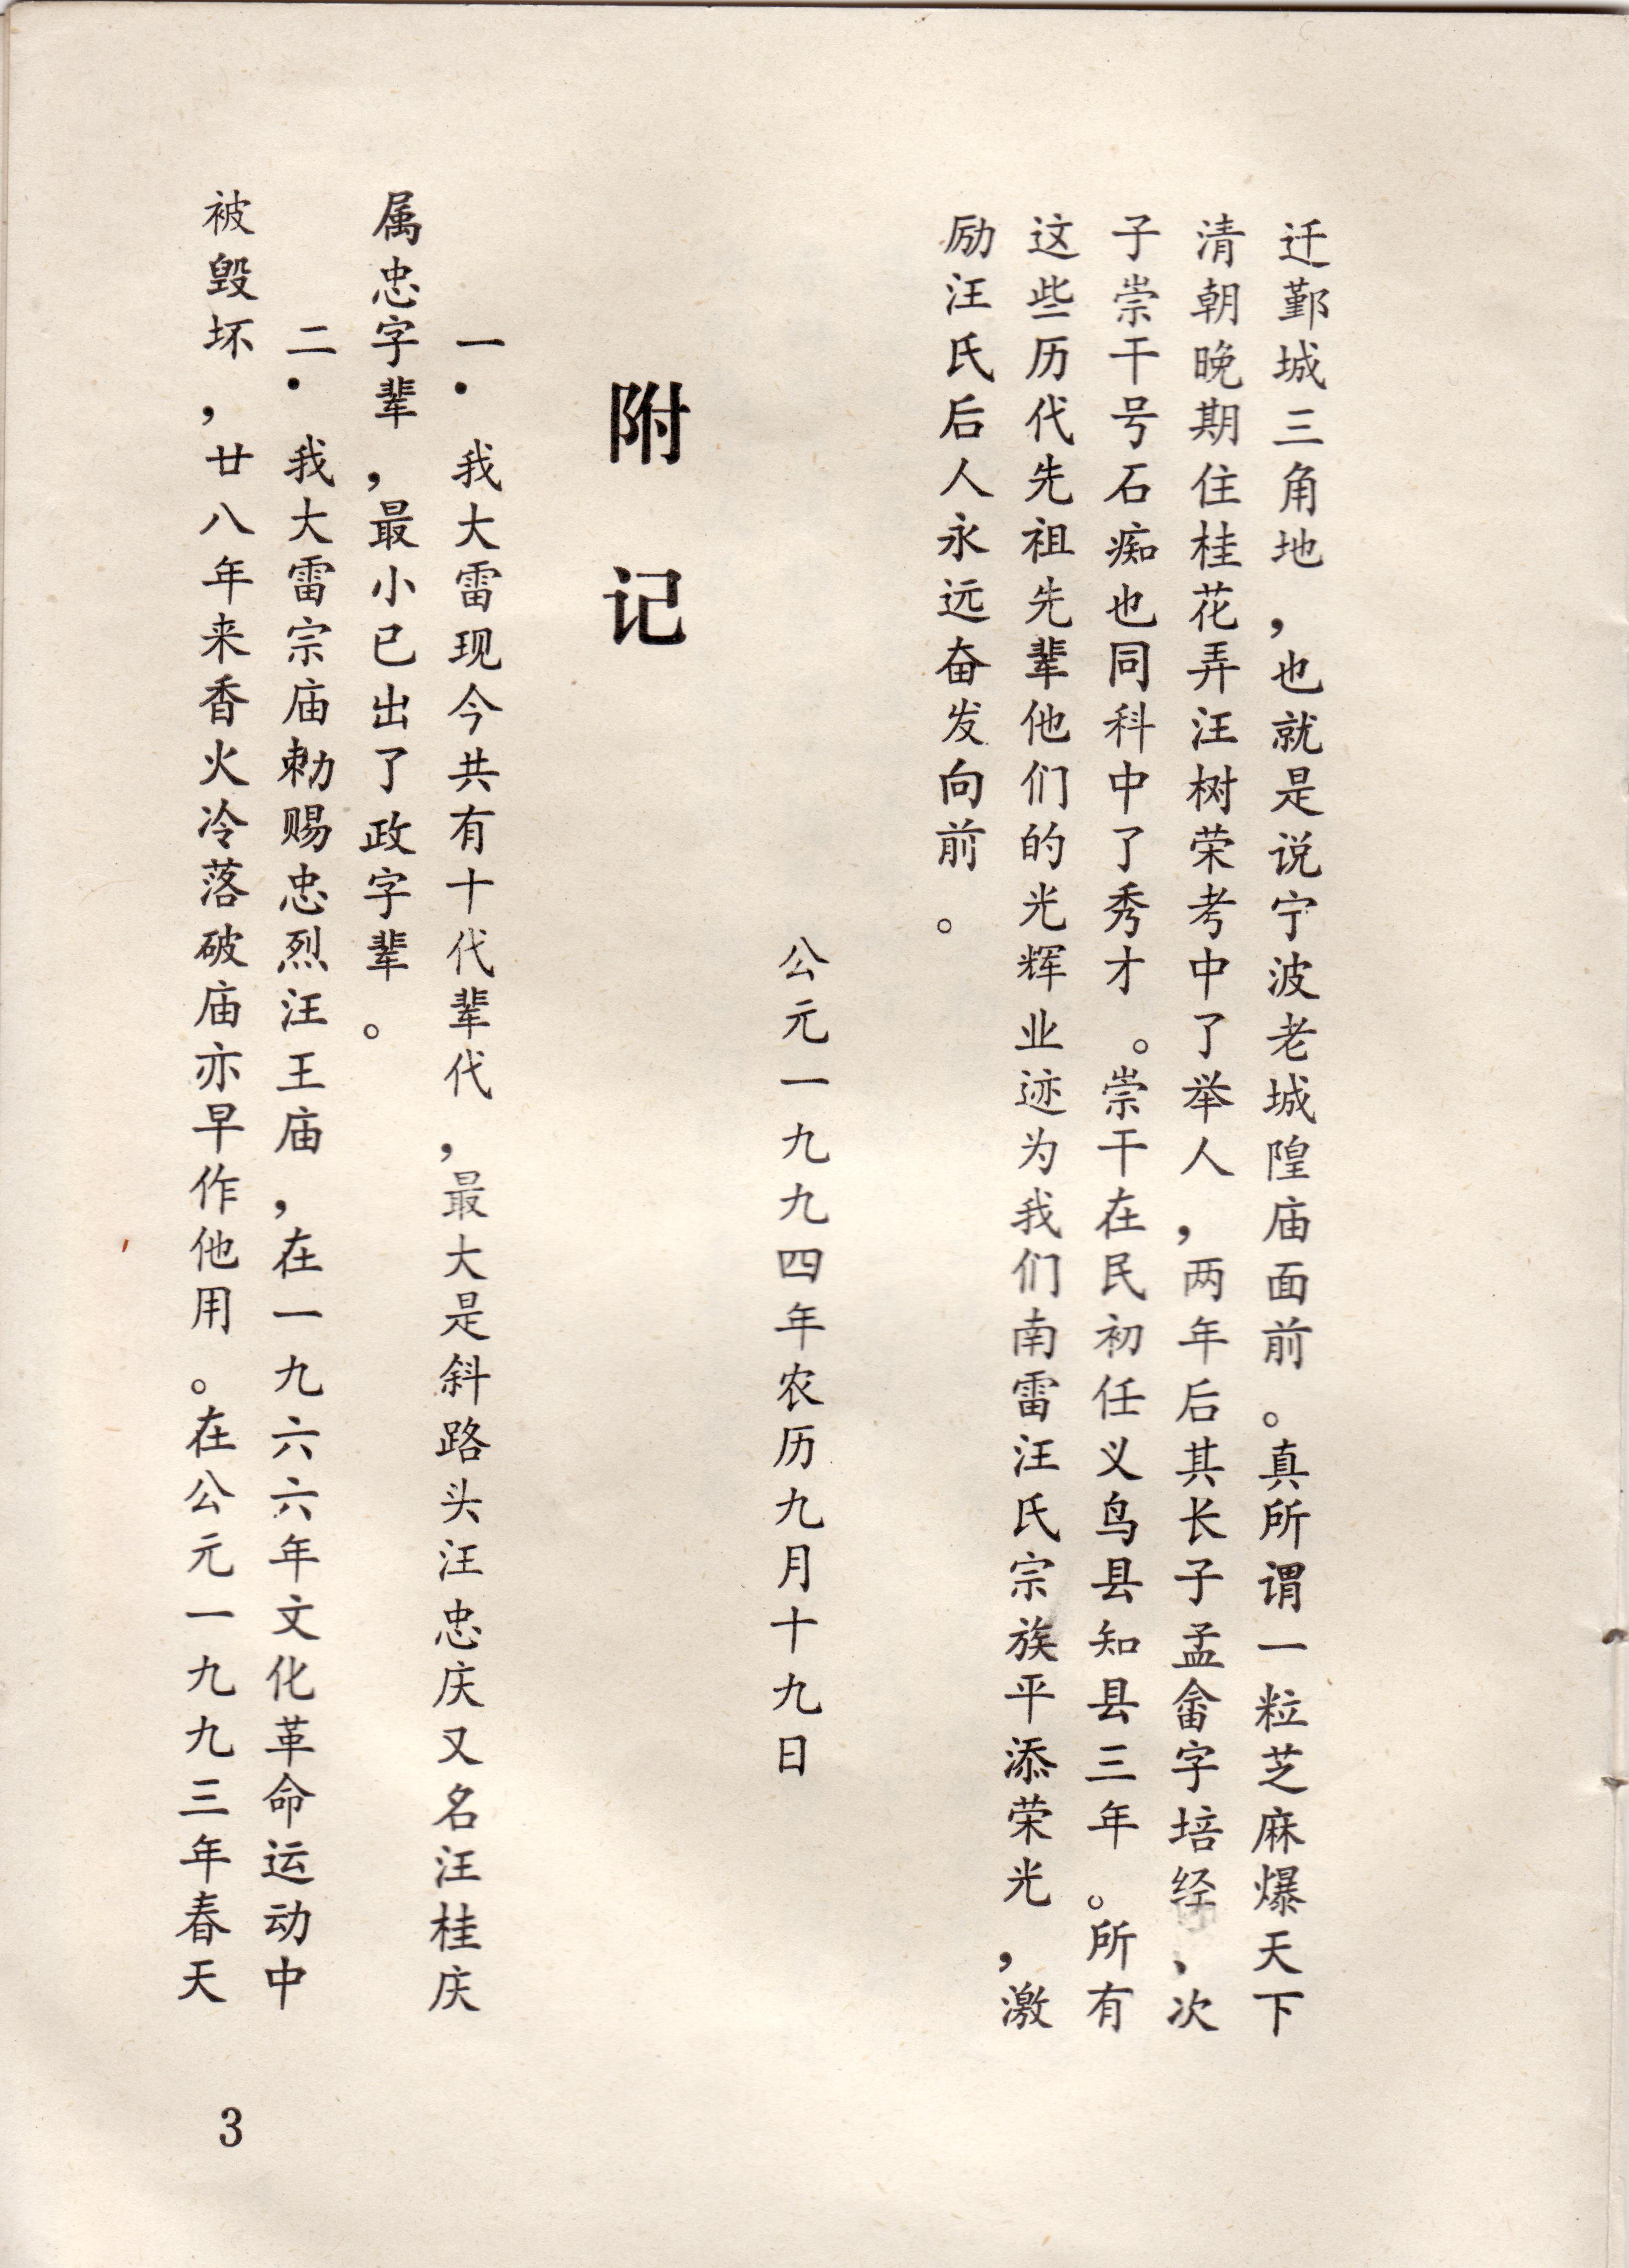 迁鄞城三角地，也就是说宁波老城隍庙面前。真所谓一粒芝麻爆天下
清朝晚期住桂花弄汪树荣考中了举人，两年后其长子孟畲字培经，次
子崇干号石痴也同科中了秀才。崇干在民初任义鸟县知县三年。所有
这些历代先祖先辈他们的光辉业迹为我们南雷汪氏宗族平添荣光，激
励汪氏后人永远奋发向前。
公元一九九四年农历九月十九日
附记
一．我大雷现今共有十代辈代，最大是斜路头汪忠庆又名汪桂庆
属忠字辈，最小已出了政字辈。
二．我大雷宗庙勅赐忠烈汪王庙，在一九六六年文化革命运动中
被毁坏，廿八年来香火冷落破庙亦早作他用。在公元一九九三年春天
3